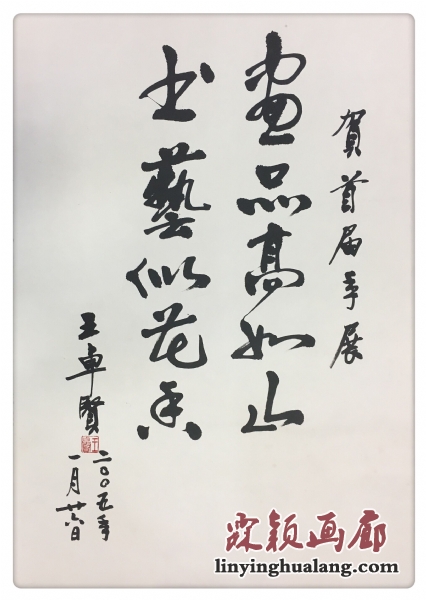 賀首届年展
畫品高如山
书藝似花香
王卓賢
二〇〇五年
一月廿六日
霖颖画廊
linyinghualang.com